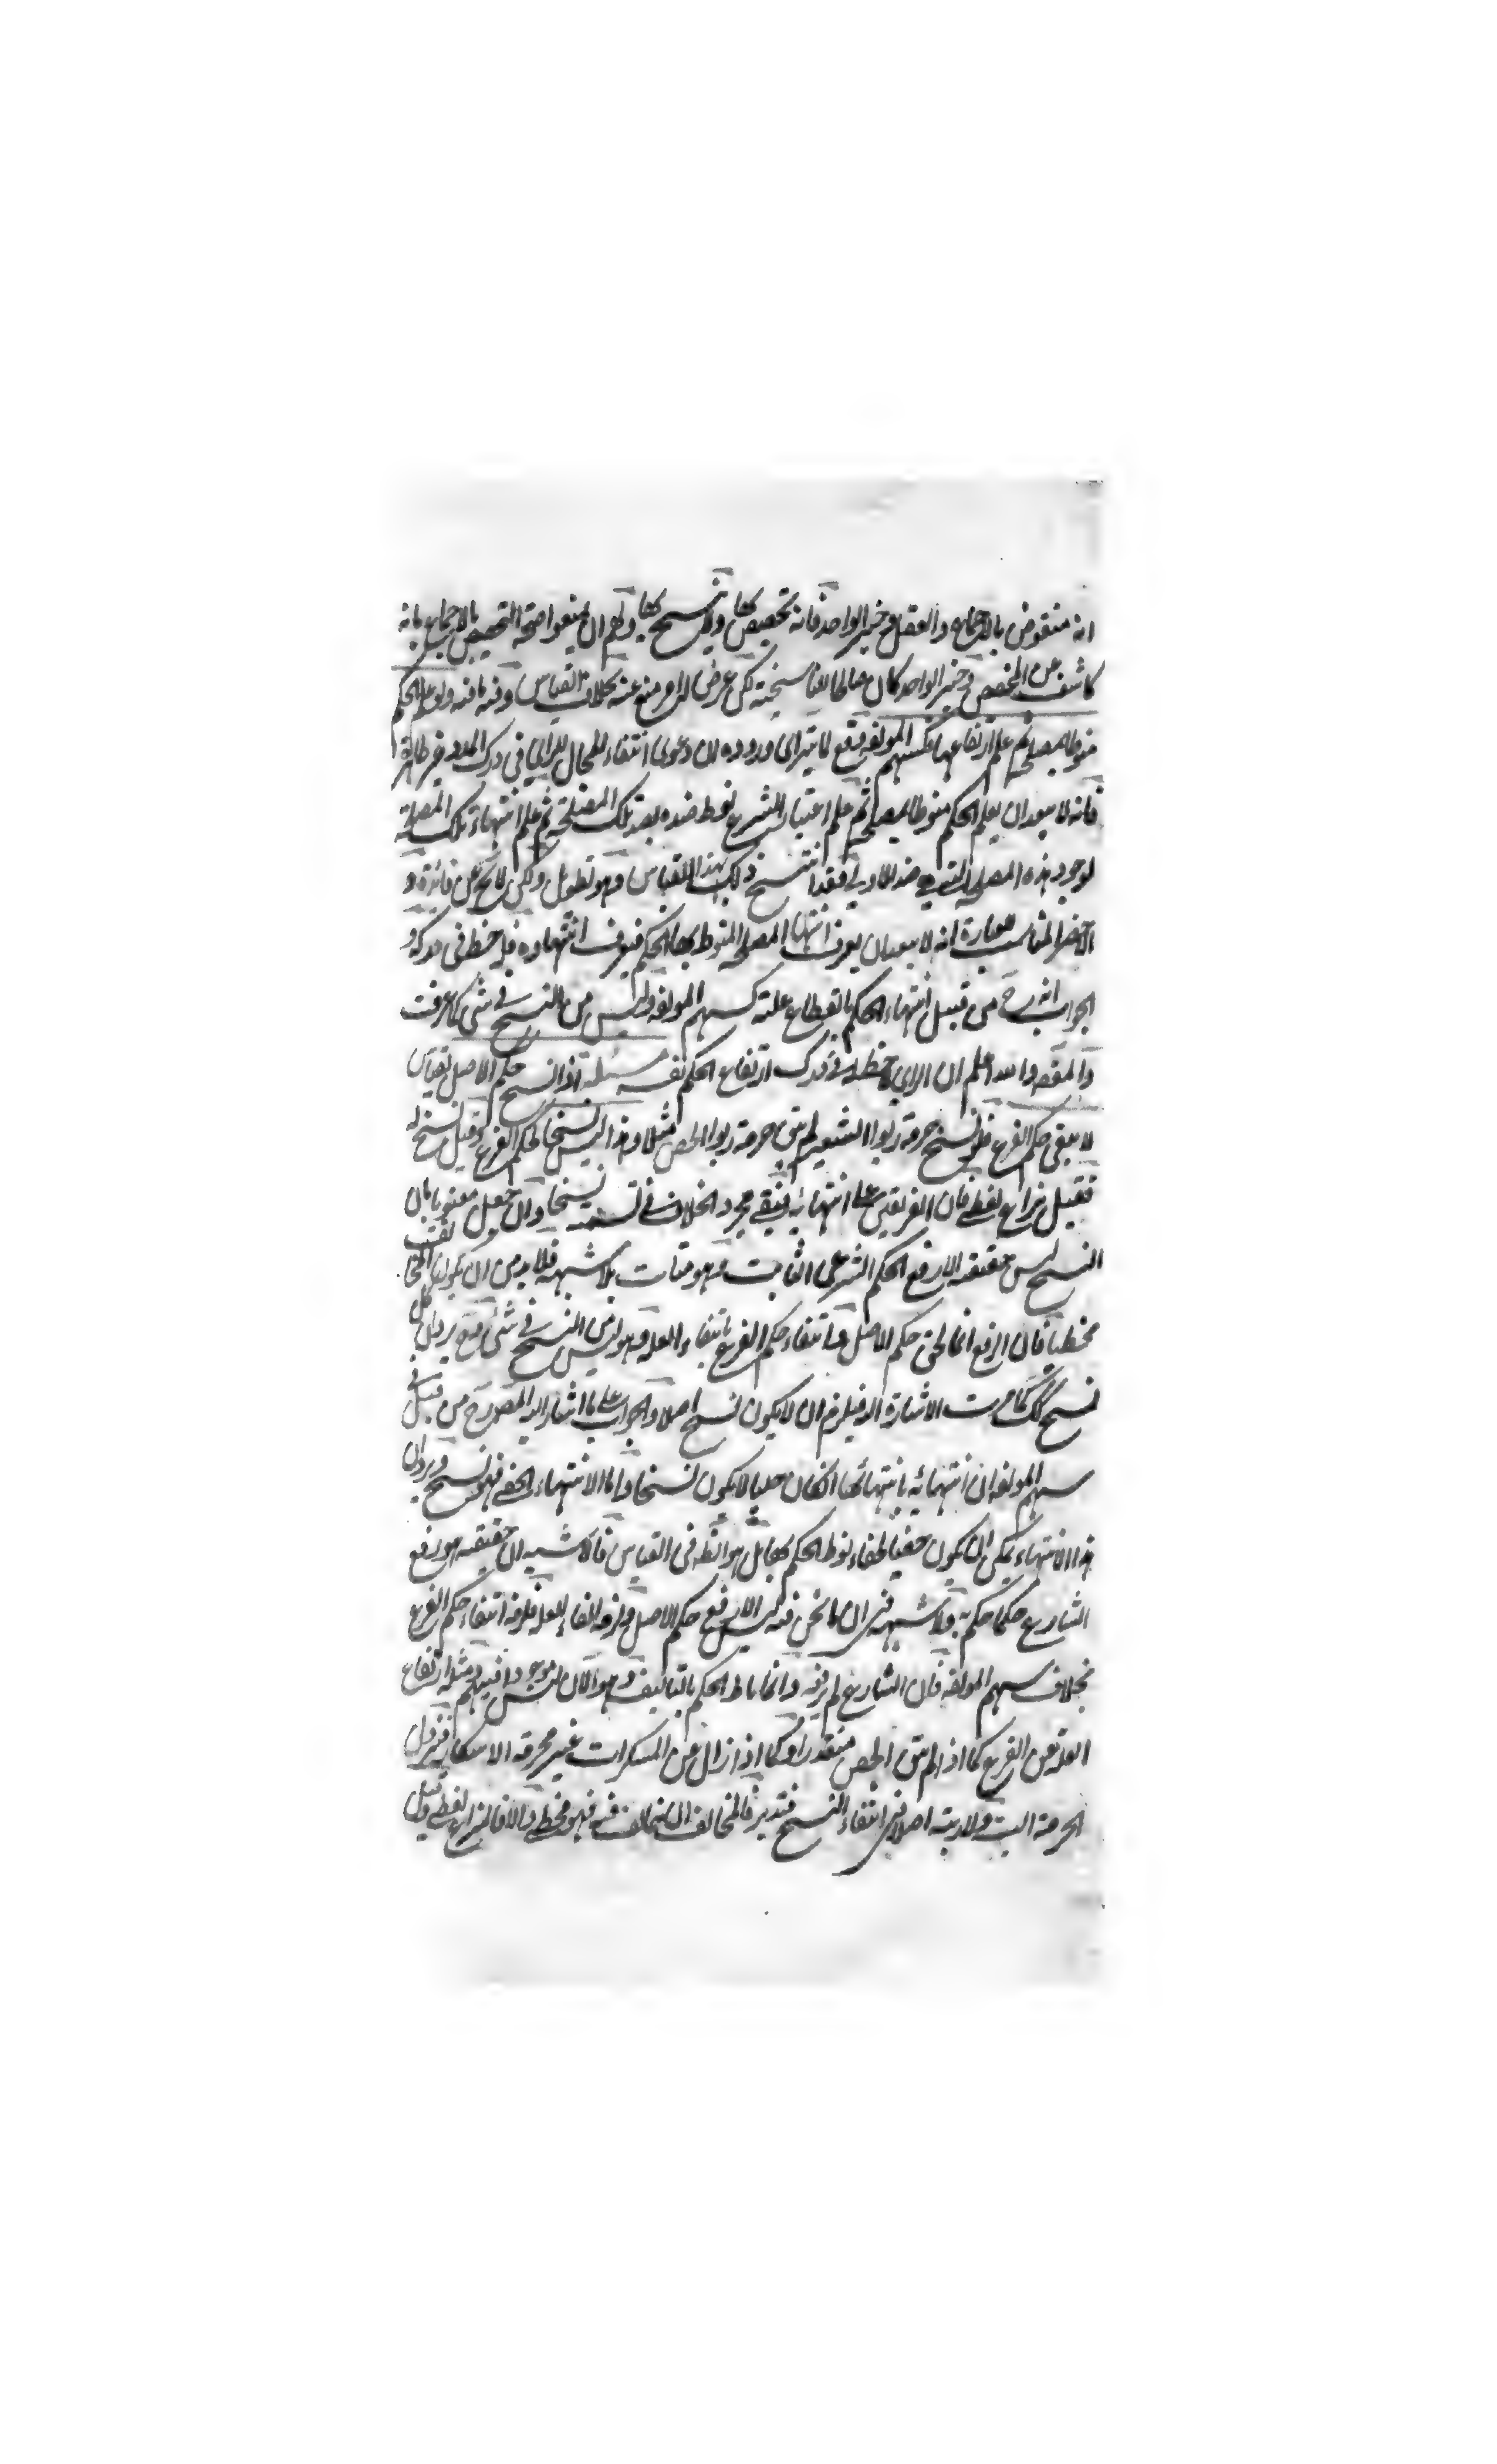 انه منقوض بالاجماع والعقل وخبر الواحد فانه تخصيص بها ولا نسخ بها ولهم ان يمنعوا صحة التخصيص بالاجماع بانه
كاشف عن المخصص وخبر الواحد كان صالحا للناسخية لكن عرض امر منع عنه بخلاف القياس وفيه ما فيه ولو علم الحكم
منوطا بمصلحة ثم علم ارتفاعها كسهم المولفة وقع لما يترااى وروده ان دعوى انتفاء المجال للراى في درك المدة غير ظاهرة
فانه لا يبعد ان يعلم الحكم منوطا بمصلحة ثم علم اعتبار الشرع نوط ضده بضد تلك المصلحة ثم علم انتهاء تلك المصلحة
لوجود هذه المصلحة التي هي ضد الاولى فقد انتسخ ذلك بهذا القياس وهو تطويل ولكن لا يخ عن فائدة و
الاخصر المناسب عبارة انه لا يبعد ان يعرف انتهاء المصلحة المنوط بها الحكم فيعرف انتهاؤه فله حظ في مدركه و
الجواب انه ح من قبيل انتهاء الحكم بانقطاع علته كسهم المولفة وليس من النسخ في شئ كما عرفت
والمقصود والله اعلم ان الراى لا حظ له في درك ارتفاع الحكم نفسه مسئلة اذا نسخ حكم الاصل للقياس
لا يبقى حكم الفرع فلو نسخ حرمة ربوا الشعير لم يبق حرمة ربوا الجص مثلا وهذا ليس نسخا لحكم الفرع وقيل نسخ له
فقيل نزاع لفظي فان الفريقين على انتهائه فبقي مجرد الخلاف في تسميته نسخا وان جعل معنويا بان
النسخ ليس حقيقته الا رفع الحكم الشرعي الثابت وهو متات بلا شبهة فلا بد من ان يكون المخالف
مخطيا فان الرفع انما لحق حكم الاصل واما انتفاء حكم الفرع بانتفاء العلة وهو ليس من النسخ في شئ وقد يرد بان كل
نسخ كك كما مرت الاشارة اليه فيلزم ان لا يكون نسخ اصلا والجواب على ما اشار اليه المصنف رح من قبل في
سهم المولفة ان انتهائه بانتهائها ان كان جليا لا يكون نسخا واما الانتهاء الخفي فهو نسخ ويرد ان
هذا الانتهاء يمكن ان يكون خفيا لخفاء نوط الحكم بها بل هو الظاهر في القياس فالاشبه ان حقيقته هو رفع
الشارع حكما حكم به ولا شبهة في ان ما نحن فيه ليس الا رفع حكم الاصل ولزمه الغاء العلة فلزمه انتفاء حكم الفرع
بخلاف سهم المولفة فان الشارع لم يرفعه وانما ناط الحكم بالتاليف وهو الآن ليس موجودا فيهم ومثله ارتفاع
العلة عن الفرع كما اذا لم يبق الجص متقدرا وكما اذا زال عن المسكرات غير محرمة الاسكار فتزول
الحرمة البتة ولا ريبة اصلا في انتفاء النسخ فتدبر فالمخالف ان خالف فيه فهو مخطي والا فالنزاع لفظي وقيل